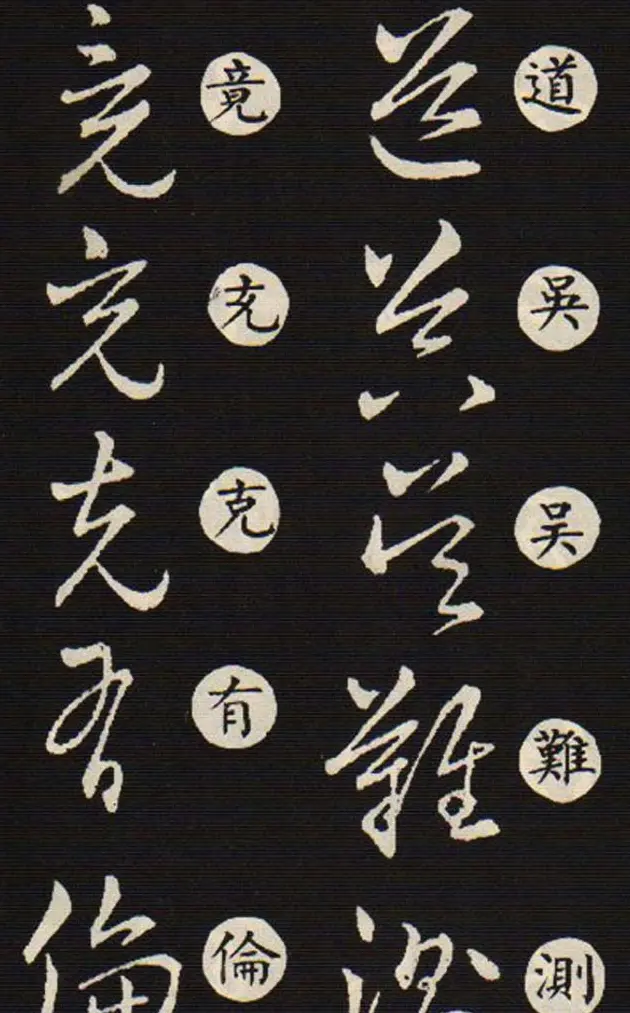 道吳吴難測
竟充克有倫